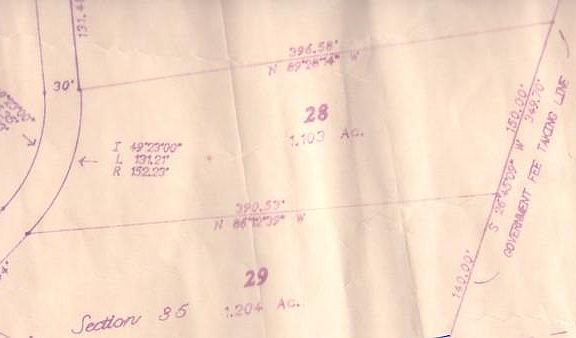 131.4
396.58'
N 89°28'14" W
30'
28
1.103 Ac.
150.00'
349.70'
S 26°45'09" W
GOVERNMENT FEE TAKING LINE
I 49°23'00"
L 131.21'
R 152.23'
390.53'
N 86°12'39" W
29
1.204 Ac.
140.00'
Section 35